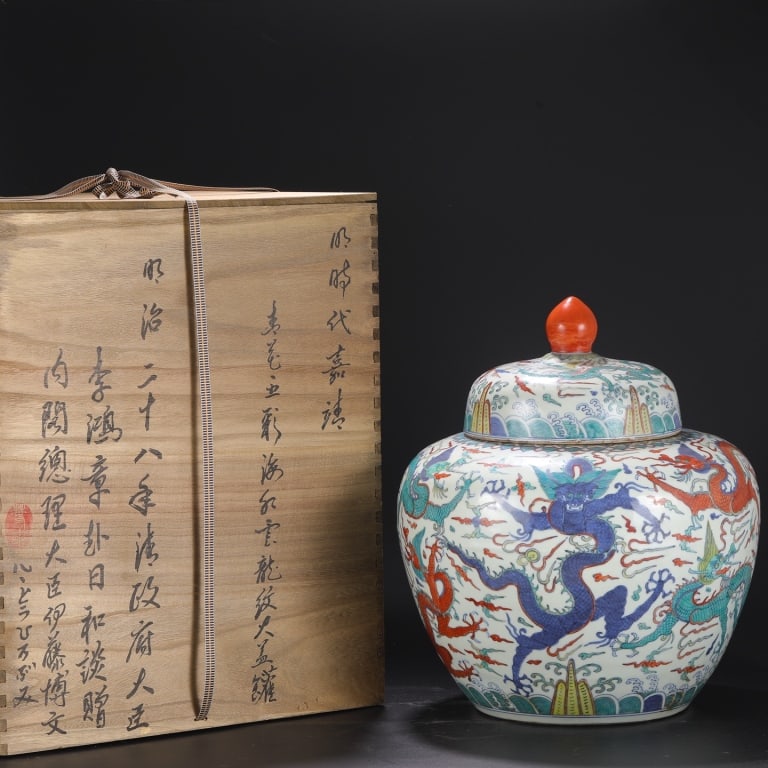 明時代嘉靖
青花五彩海水雲龍紋大蓋罐
明治二十八年清政府大臣
李鴻章赴日和談贈
内閣總理大臣伊藤博文